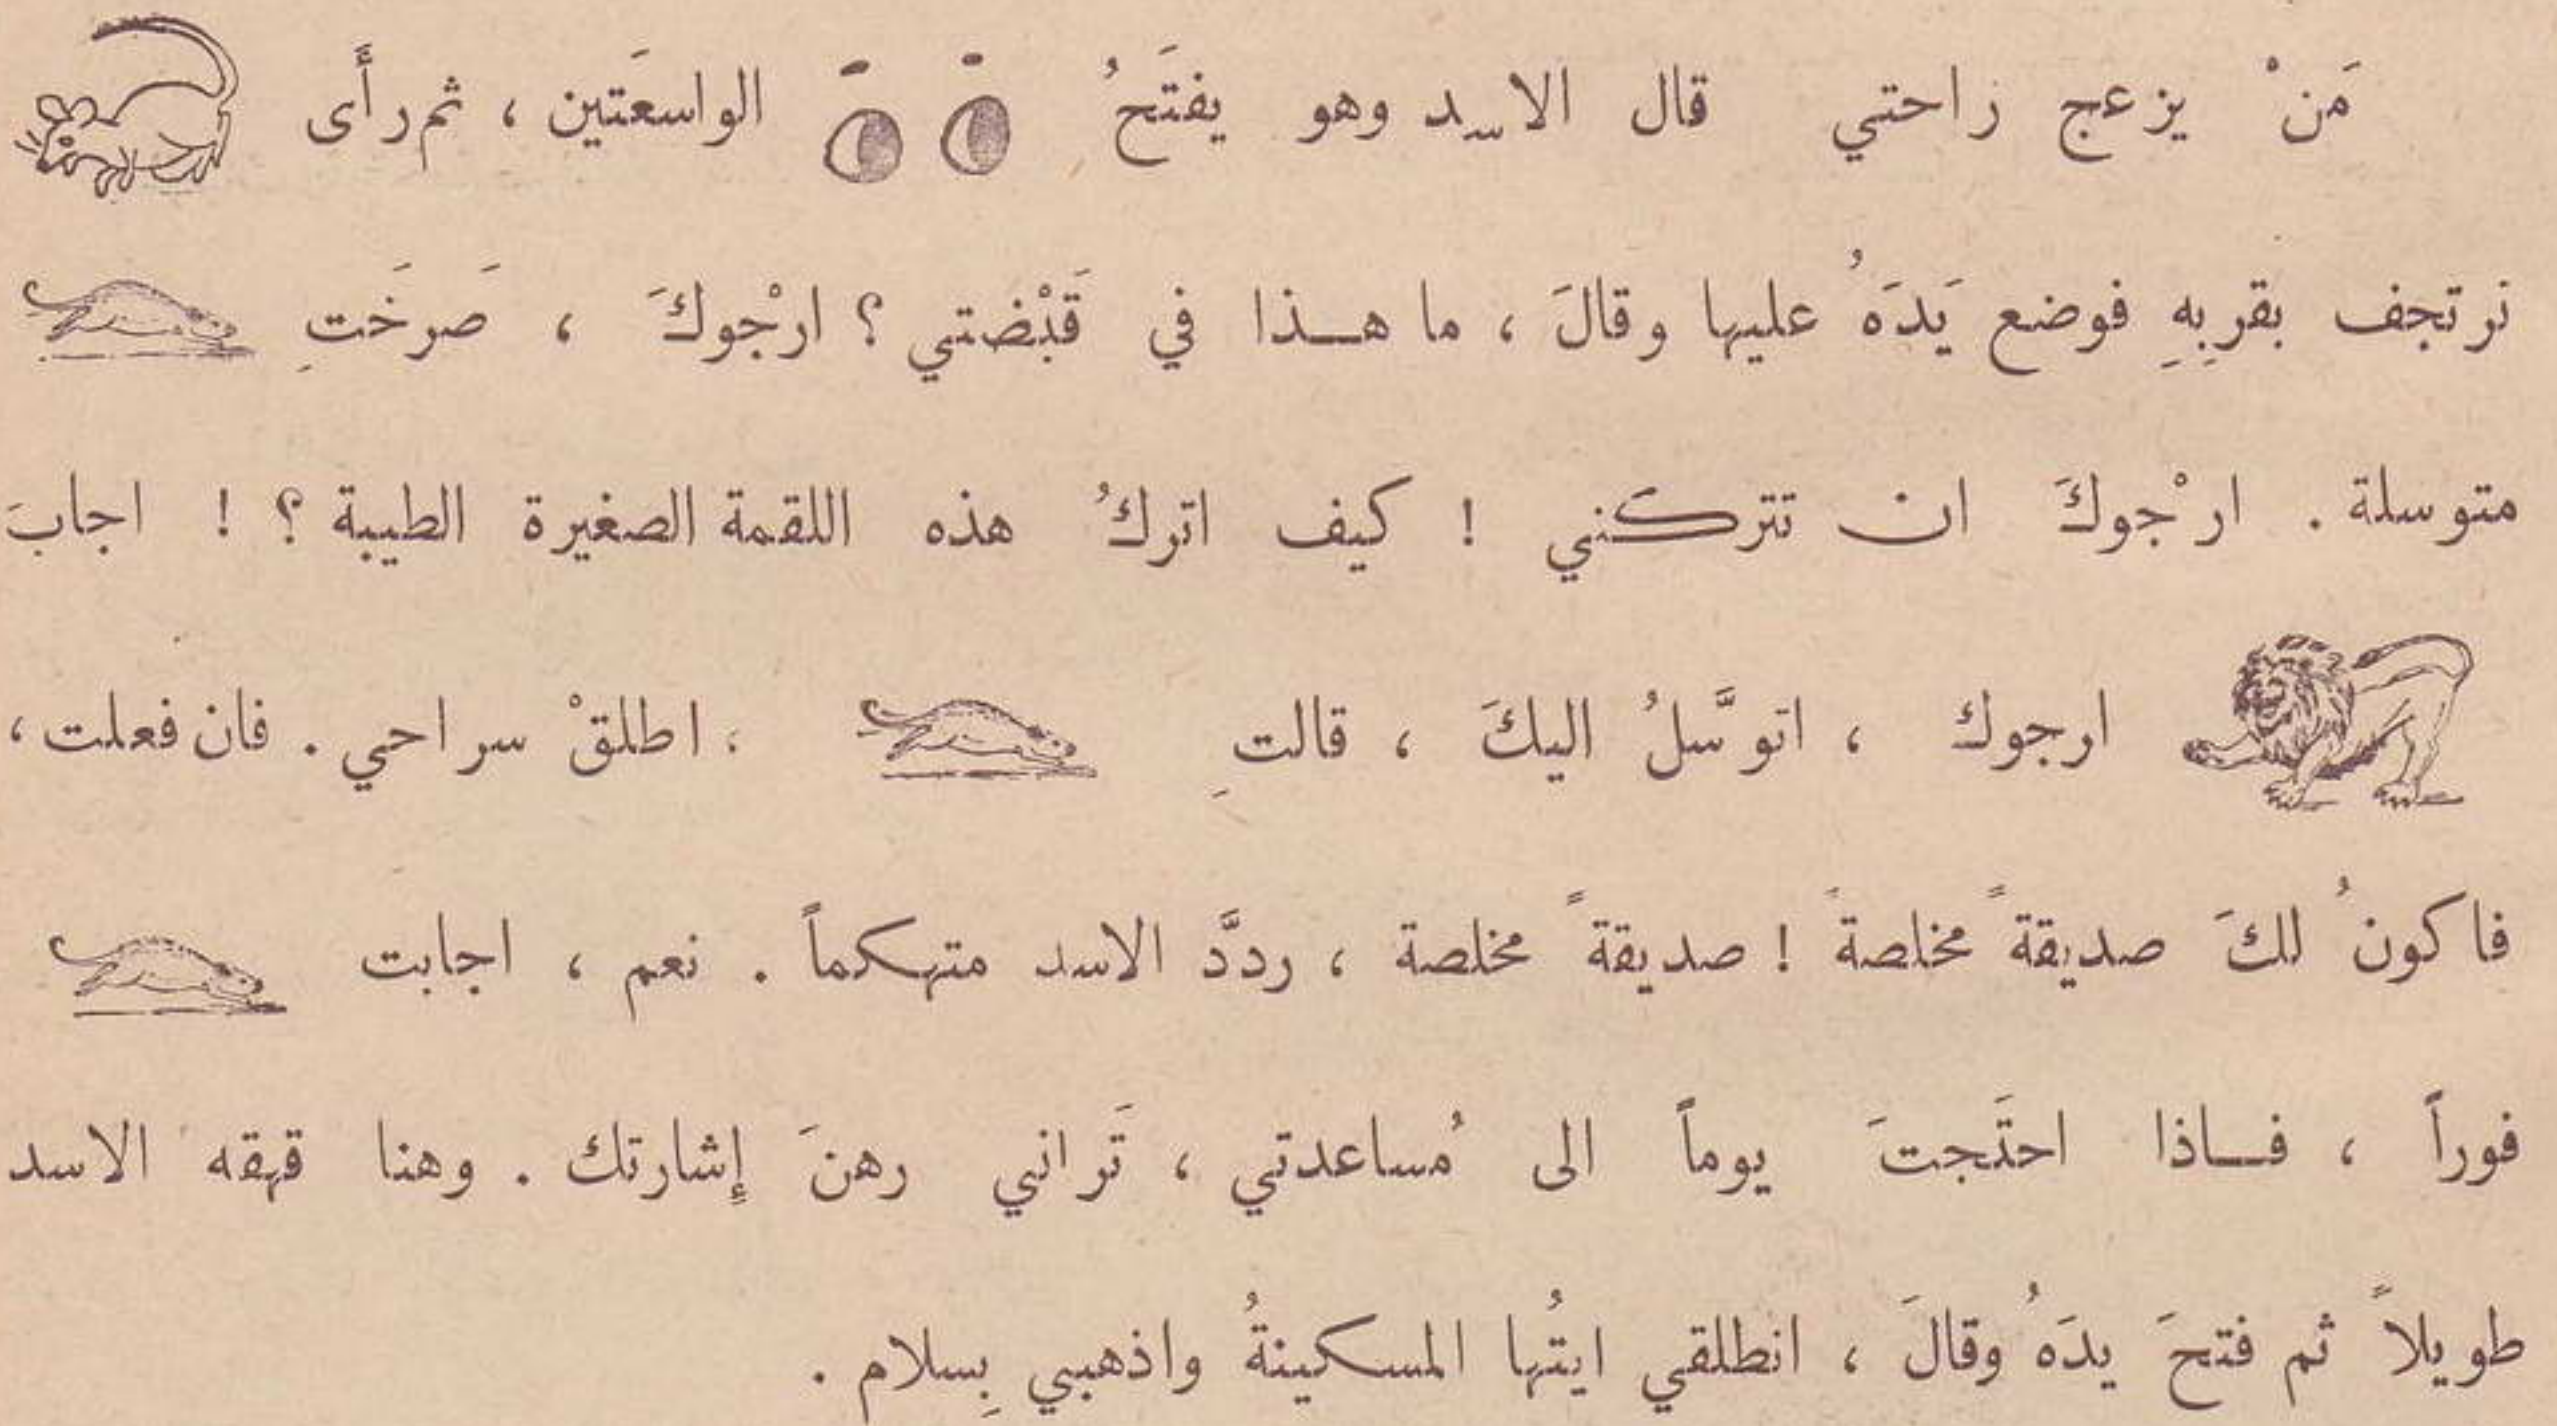 مَنْ يزعج راحتي قال الاسد وهو يفتَحُ الواسعَتين ، ثم رأَى
ترتجف بقربِهِ فوضع يَدَهُ عليها وقالَ ، ما هـذا في قَبْضتي ؟ ارْجوكَ ، صَرخَتِ
متوسلة . ارْجوكَ ان تتركَني ! كيف اتركُ هذه اللقمة الصغيرة الطيبة ؟ ! اجابَ
ارجوك ، اتوسَّلُ اليكَ ، قالتِ ، اطلقْ سراحي . فان فعلت ،
فاكونُ لكَ صديقةً مخلصةً ! صديقةً مخلصة ، ردَّد الاسد متهكماً . نعم ، اجابت
فوراً ، فـاذا احتَجتَ يوماً الى مُساعدتي ، تَراني رهنَ إشارتك . وهنا قهقه الاسد
طويلاً ثم فتحَ يدَهُ وقالَ ، انطلقي ايتُها المسكينةُ واذهبي بِسلام .